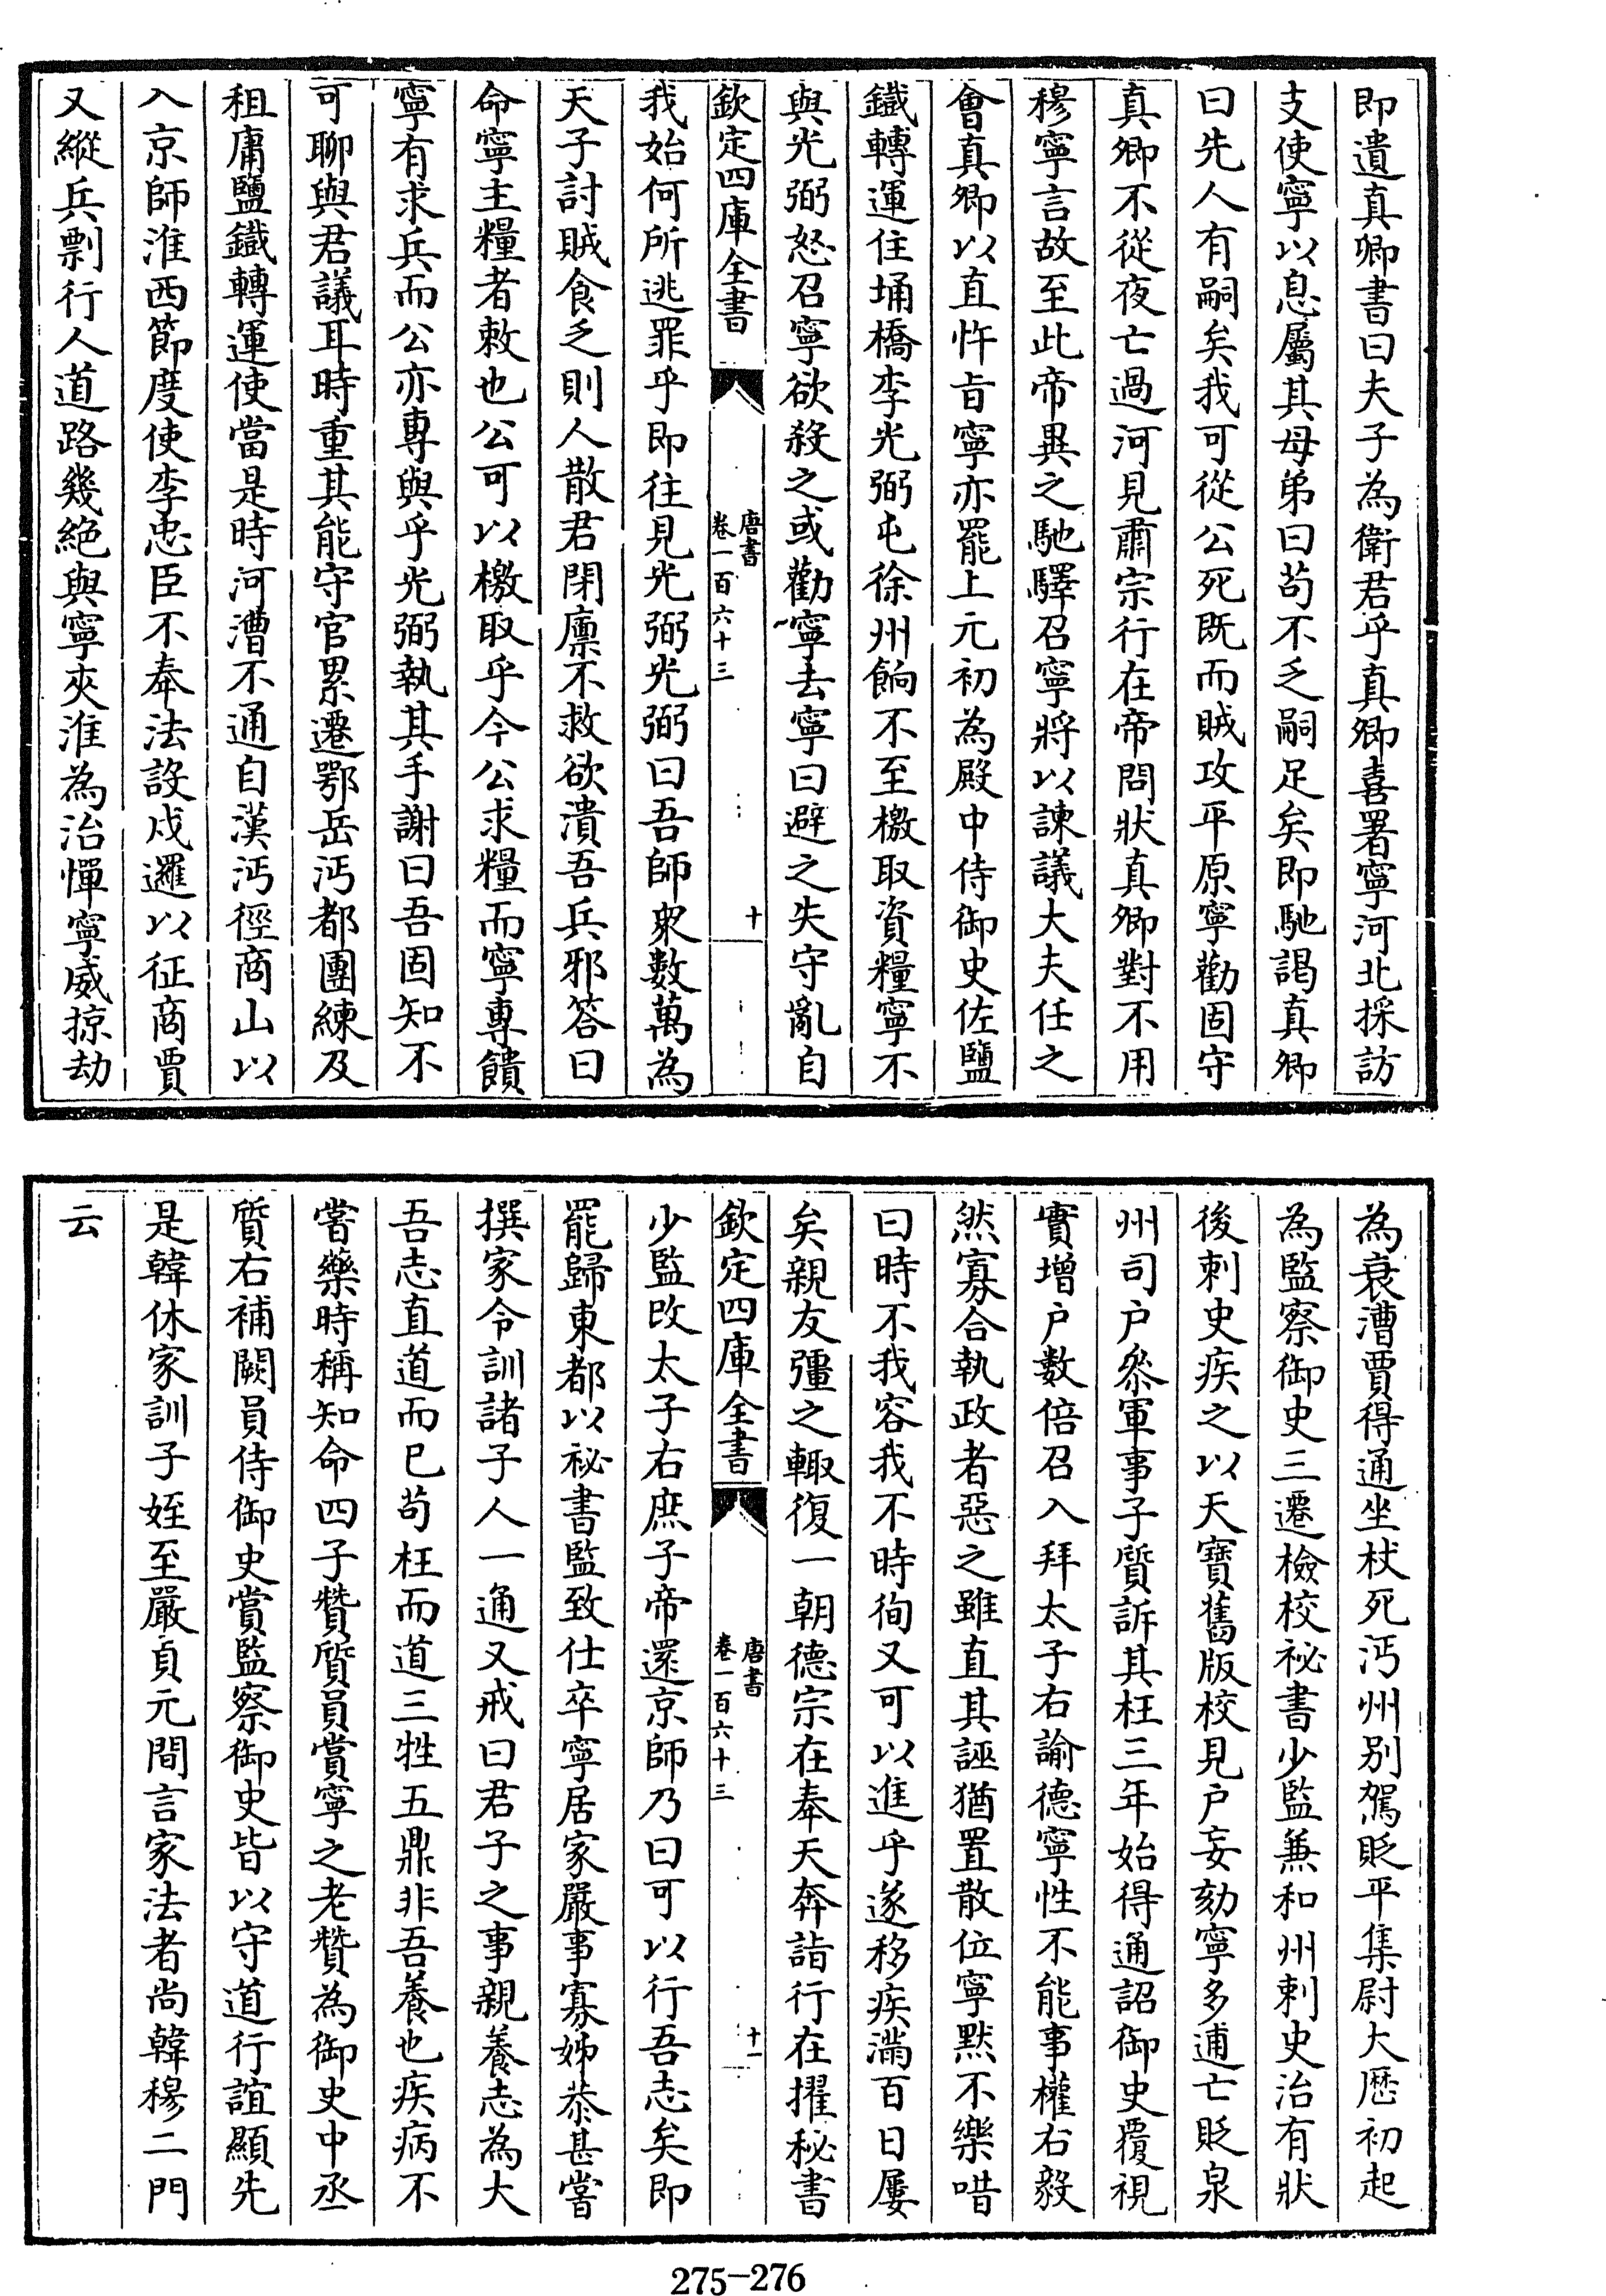 即遺真卿書曰夫子為衛君乎真卿喜署寧河北採訪
支使寧以息屬其母弟曰苟不乏嗣足矣即馳謁真卿
曰先人有嗣矣我可從公死既而賊攻平原寧勸固守
真卿不從夜亡過河見肅宗行在帝問狀真卿對不用
穆寧言故至此帝異之馳驛召寧將以諫議大夫任之
會真卿以直忤旨寧亦罷上元初為殿中侍御史佐鹽
鐵轉運住埇橋李光弼屯徐州餉不至檄取資糧寧不
與光弼怒召寧欲殺之或勸寧去寧曰避之失守亂自
欽定四庫全書
唐書
卷一百六十三
十
我始何所逃罪乎即往見光弼光弼曰吾師衆數萬為
天子討賊食乏則人散君閉廪不救欲潰吾兵邪答曰
命寧主糧者敕也公可以檄取乎今公求糧而寧專饋
寧有求兵而公亦專與乎光弼執其手謝曰吾固知不
可聊與君議耳時重其能守官累遷鄂岳沔都團練及
租庸鹽鐵轉運使當是時河漕不通自漢沔徑商山以
入京師淮西節度使李忠臣不奉法設戍邏以征商賈
又縱兵剽行人道路幾絶與寧夾淮為治憚寧威掠劫
為衰漕賈得通坐杖死沔州别駕貶平集尉大厯初起
為監察御史三遷檢校祕書少監兼和州刺史治有狀
後刺史疾之以天寶舊版校見户妄劾寧多逋亡貶泉
州司户參軍事子質訴其枉三年始得通詔御史覆視
實增户數倍召入拜太子右諭德寧性不能事權右毅
然寡合執政者惡之雖直其誣猶置散位寧默不樂喟
曰時不我容我不時徇又可以進乎遂移疾滿百日屢
矣親友彊之輙復一朝德宗在奉天奔詣行在擢秘書
欽定四庫全書
唐書
卷一百六十三
十一
少監改太子右庶子帝還京師乃曰可以行吾志矣即
罷歸東都以祕書監致仕卒寧居家嚴事寡姊恭甚嘗
撰家令訓諸子人一通又戒曰君子之事親養志為大
吾志直道而已苟枉而道三牲五鼎非吾養也疾病不
嘗藥時稱知命四子贊質員賞寧之老贊為御史中丞
質右補闕員侍御史賞監察御史皆以守道行誼顯先
是韓休家訓子姪至嚴貞元間言家法者尚韓穆二門
云
275-276